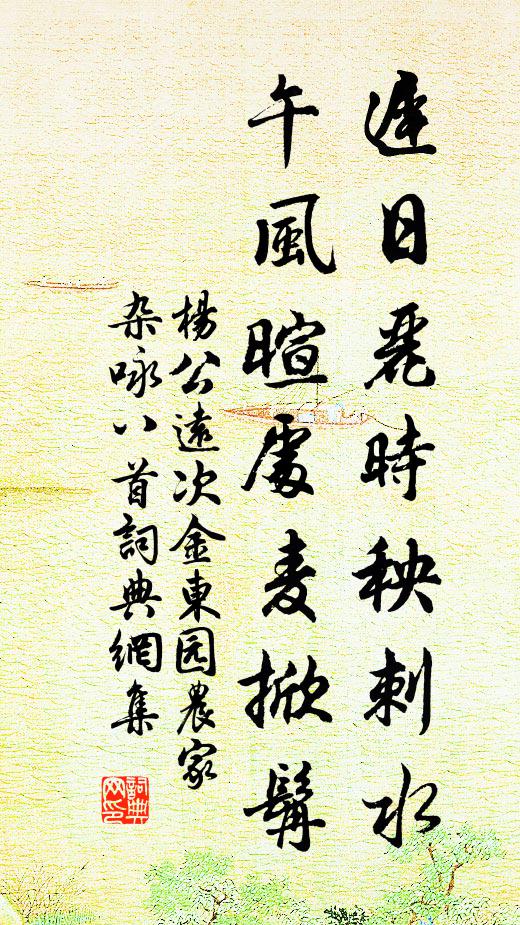 遲日麗時秧刺水
午風暄處麦掀髯
楊公遠次金東园農家
杂咏八首詞典網集
詞典网印